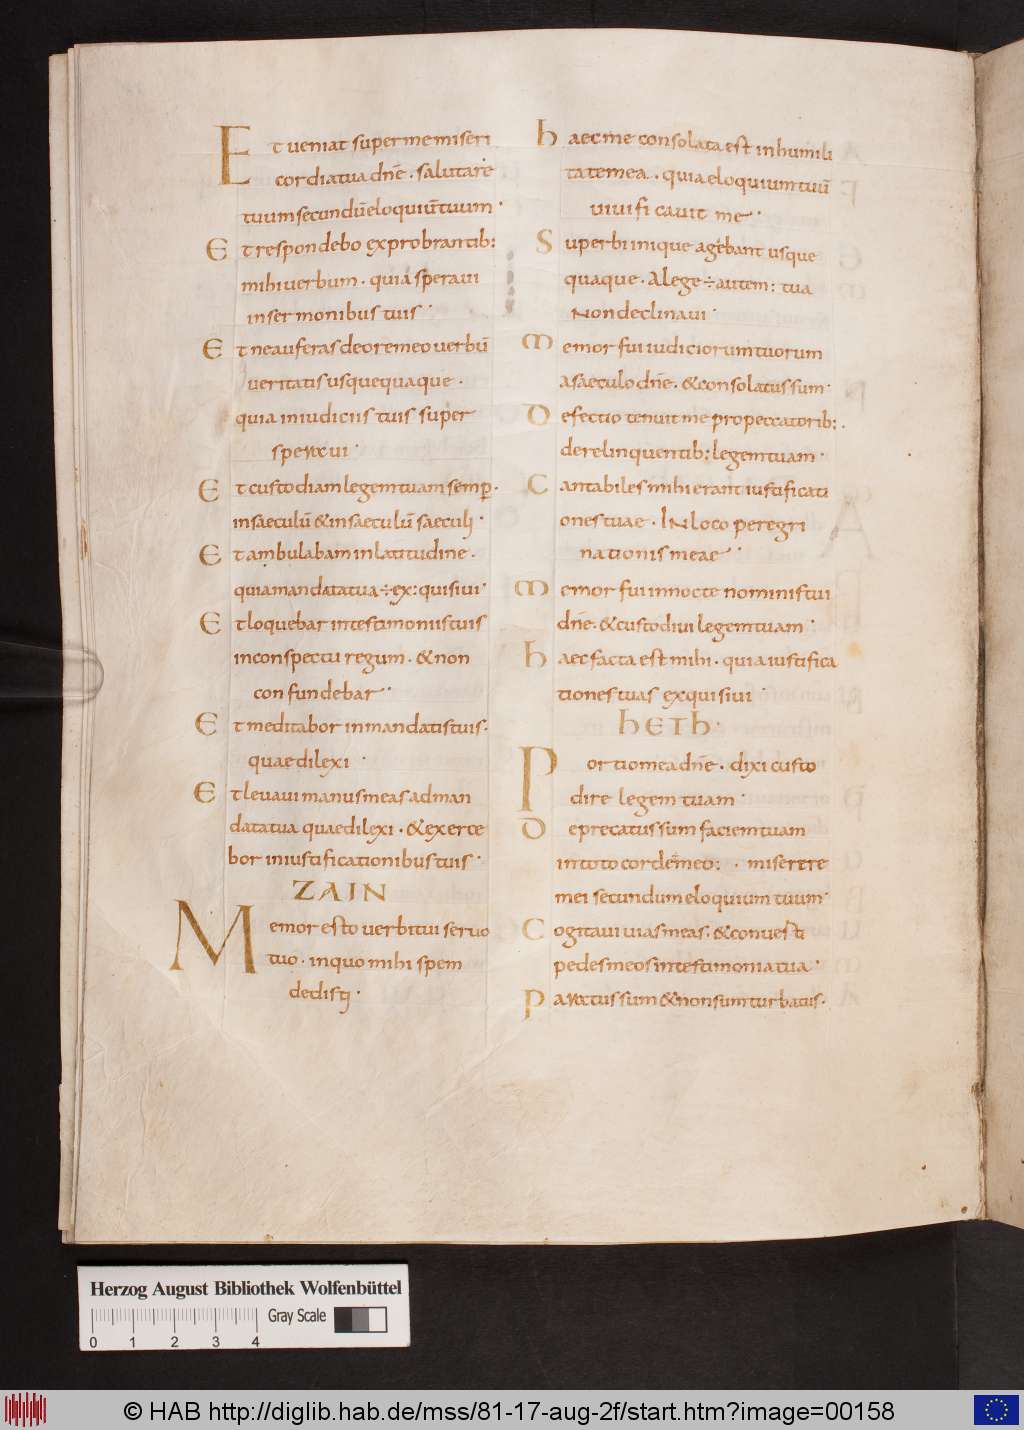 Et ueniat super me miseri
cordia tua dñe · salutare
tuum secundū eloquiū tuum ·
Et respondebo exprobrantib:
mihi uerbum · quia speraui
in sermonibus tuis ·
Et ne auferas de ore meo uerbū
ueritatis usquequaque ·
quia in iudiciis tuis super
speraui ·
Et custodiam legem tuam semp̄ ·
in saeculū & in saeculū saeculi ·
Et ambulabam in latitudine ·
quia mandata tua ÷ ex: quisiui ·
Et loquebar in testimoniis tuis
in conspectu regum · & non
confundebar ·
Et meditabor in mandatis tuis ·
quae dilexi ·
Et leuaui manus meas ad man
data tua quae dilexi · & exerce
bor in iustificationibus tuis ·
ZAIN
Memor esto uerbi tui seruo
tuo · in quo mihi spem
dedisti ·
haec me consolata est in humili
tate mea · quia eloquium tuū
uiuificauit me ·
Superbi inique agebant usque
quaque · A lege ÷ autem: tua
Non declinaui ·
Memor fui iudiciorum tuorum
a saeculo dñe · & consolatus sum ·
Defectio tenuit me pro peccatorib: ·
derelinquentib: legem tuam ·
Cantabiles mihi erant iustificati
ones tuae · IN loco peregri
nationis meae ·
Memor fui in nocte nominis tui
dñe · & custodiui legem tuam ·
haec facta est mihi · quia iustifica
tiones tuas exquisiui ·
hETh ·
Portio mea dñe · dixi custo
dire legem tuam ·
Deprecatus sum faciem tuam
in toto corde meo: · miserere
mei secundum eloquium tuum ·
Cogitaui uias meas · & conuerti
pedes meos in testimonia tua ·
Paratus sum & non sum turbatus ·
Herzog August Bibliothek Wolfenbüttel
Gray Scale
0 1 2 3 4
© HAB http://diglib.hab.de/mss/81-17-aug-2f/start.htm?image=00158